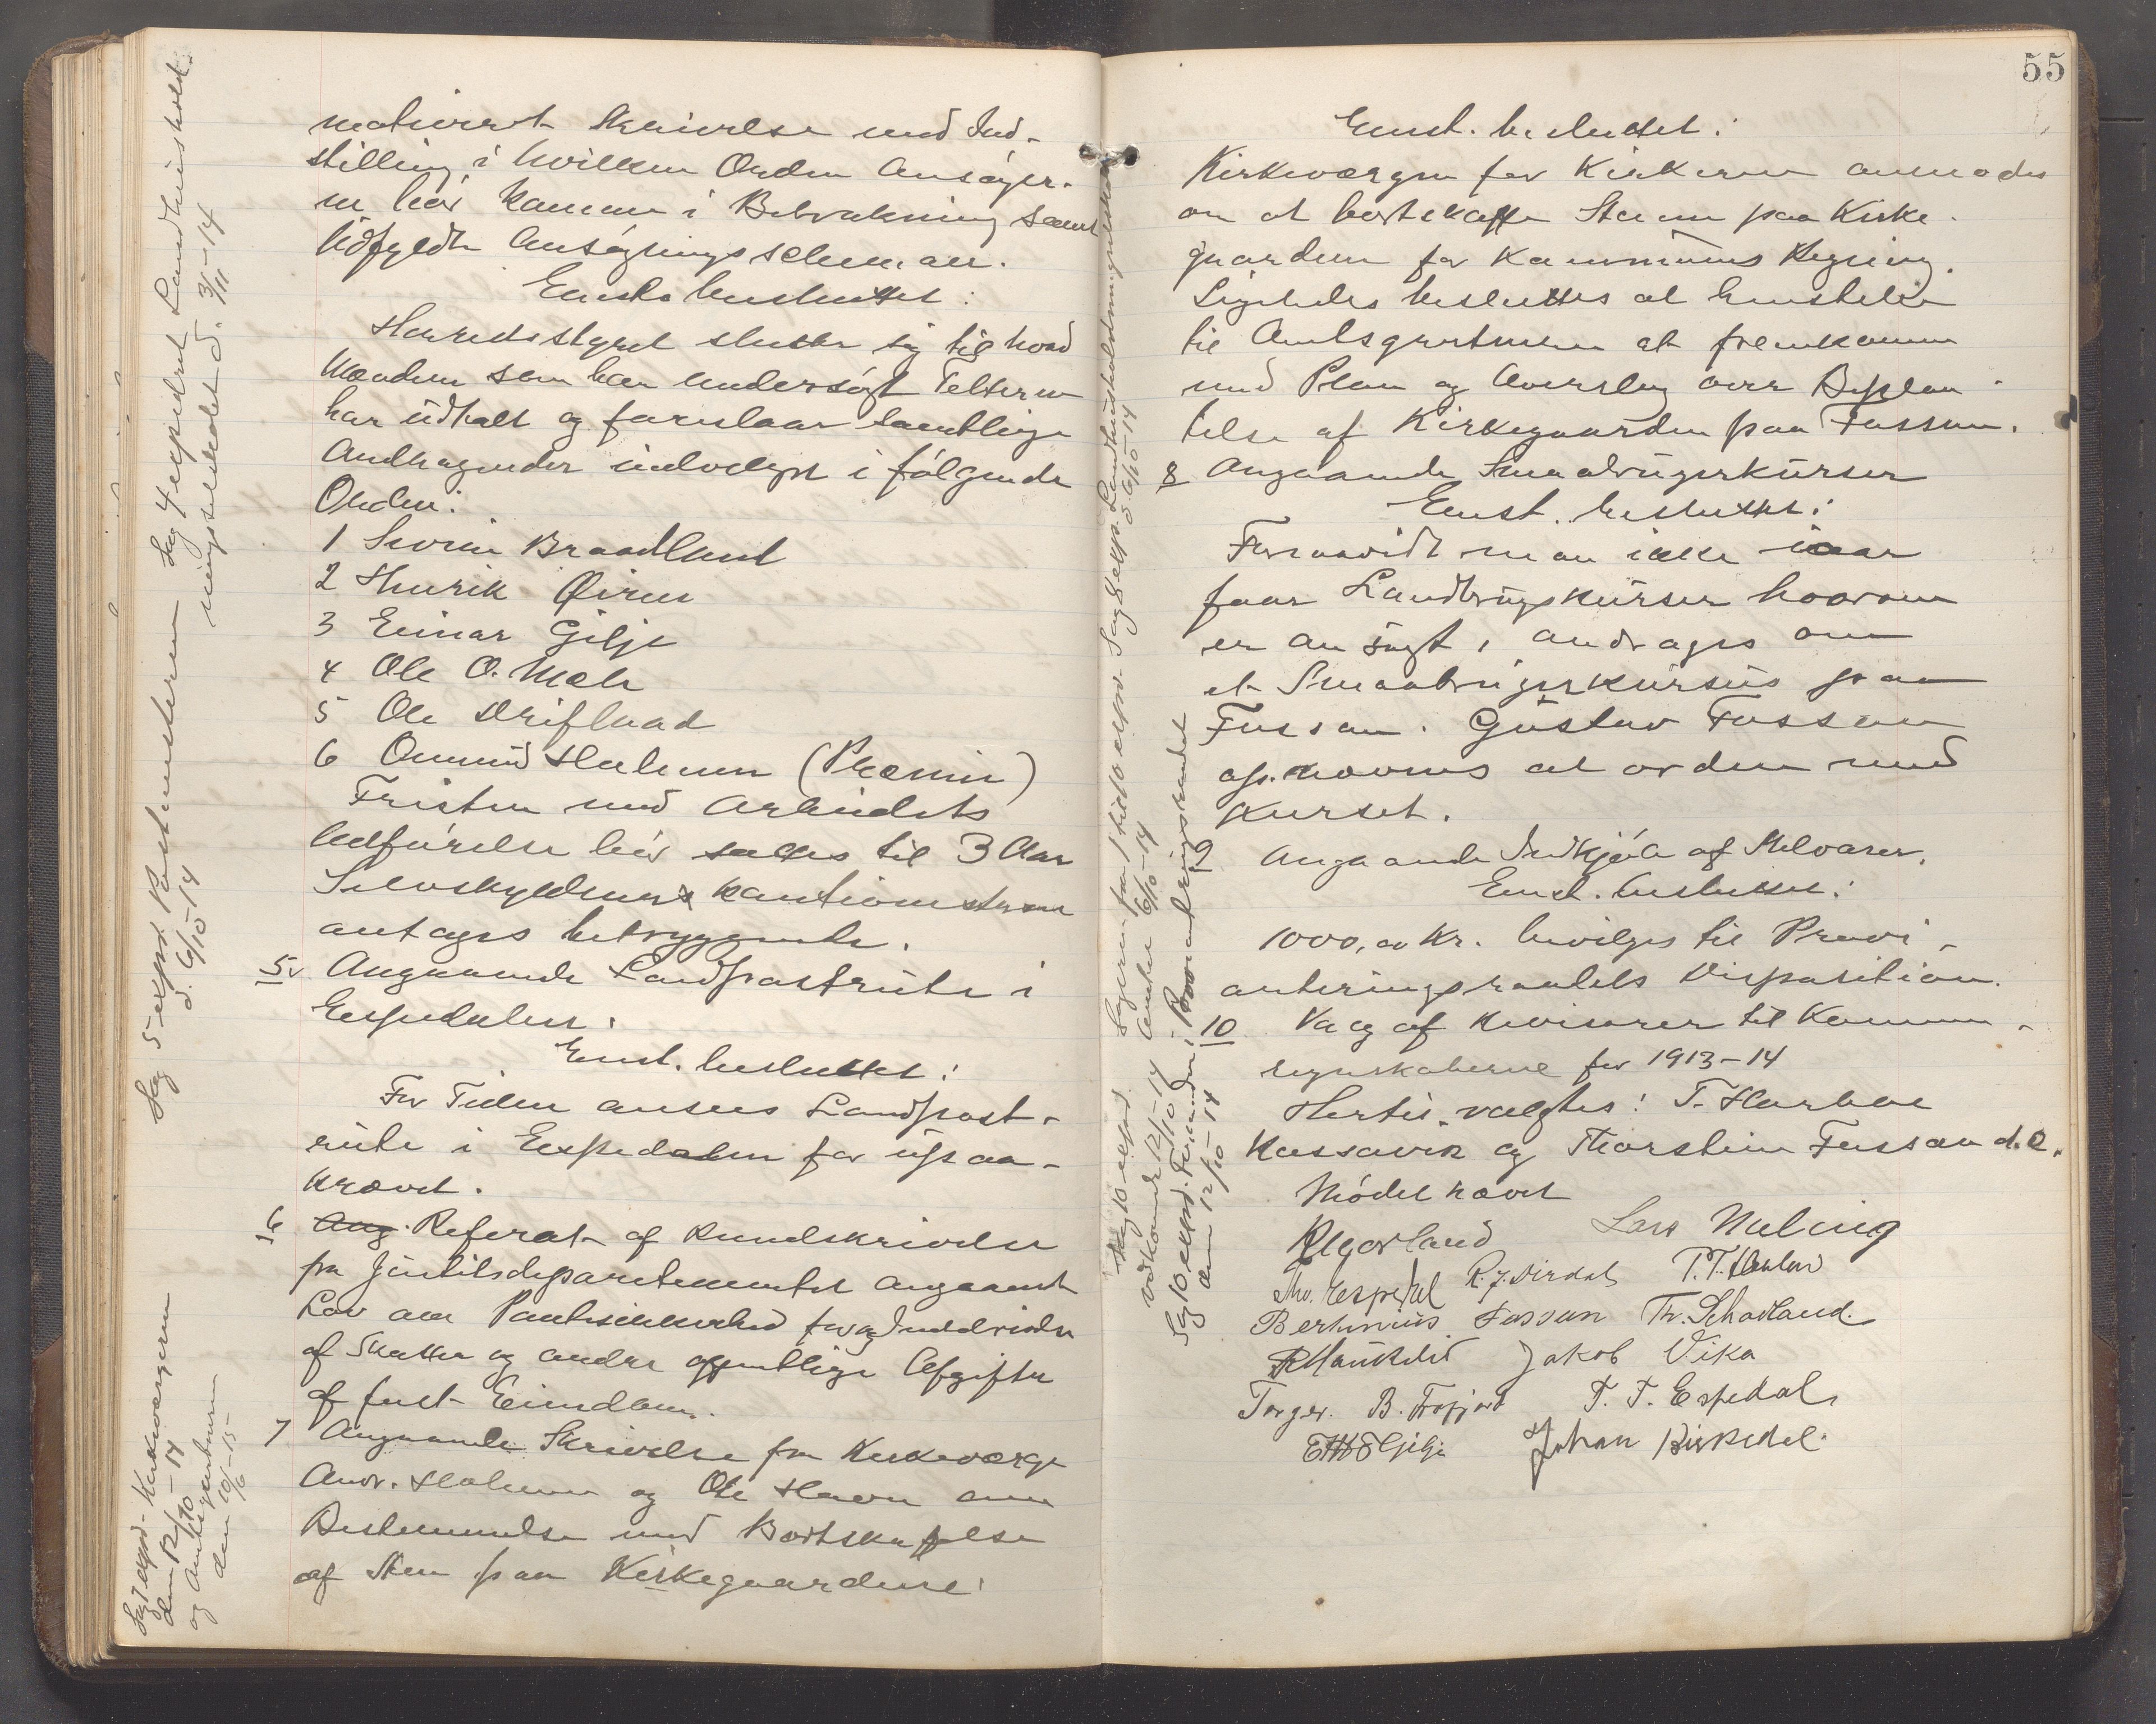 motiveret Skrivelse med Ind-
stilling i hvilken Orden Ansøger-
ne bør komme i Betraktning samt
Udfyldte Ansøgningsschemaer.
Enst. besluttet:
Herredsstyret slutter sig til hvad
Mændene som har undersøgt Felterne
har udtalt og foreslaar samtlige
Andragender indvilget i følgende
Orden:
1 Sivrin Braadland
2 Henrik Øiren
3 Einar Gilje
4 Ole O. Mæle
5 Ole Drifland
6 Ommund Halenen (Præmie)
Fristen med Arbeidets
Udførelse bør sættes til 3 Aar
Selvskyldner Kautionisterne
antages betryggende.
5 Angaaende Landpostrute i
Espedalen.
Enst. besluttet:
For Tiden ansees Landpost-
rute i Espedalen for upaa-
krævet.
6 Ang. Referat af Rundskrivelse
fra Justitsdepartementet angaaende
Lov om Pantesikkerhed for og Inddrivelse
af Skatter og andre offentlige Afgifter
af fast Eiendom.
7 Angaaende Skrivelse fra Kirkeværge
Andr. Halenen og Ole Haver om
Bestemmelse med Bortskaffelse
af Sten paa Kirkegaardene.
Sag 4 expedret Landhusholdningsselskabet d. 3/11-14
Sag 5 exped. Postmesteren d. 6/10-14
Sag 7 exped. Kirkeværgerne
den 12/10-14
og Amtsgartneren
den 10/6-15
55
Enst. besluttet:
Kirkeværgen for Kirkerne anmodes
om at bortskaffe Stenene paa Kirke-
gaardene for Kommunens Regning.
Ligeledes besluttes at henstille
til Amtsgartneren at fremkomme
med Plan og Overslag over Beplan-
telse af Kirkegaarden paa Fossan.
8 Angaaende Smaabrugerkurser
Enst. besluttet:
Forsaavidt man ikke iaar
faar Landbrugskurser hvorom
er ansøgt, andrages om
et Smaabrugerkursus paa
Fossan. Gustav Fossan
opnævnes at ordne med
Kurset.
9 Angaaende Indkjøb af Melvarer.
Enst. besluttet:
1000,00 Kr. bevilges til Provi-
anteringsraadets Disposition.
10 Valg af Revisorer til Kommune-
regnskaberne for 1913-14
Hertil valgtes: T. Haabae
Kossavik og Thorstein Fossan d.e.
Mødet hævet
Lars
Tho. Espedal R. J. Dirdal
Bertinius Fossan Th. Schadland.
Jakob Vika
Torger B. Frafjord T. T. Espedal
Gilje Johan Birkedal.
Sag 10 exped. Formanden i Provianteringsraadet
den 12/10-14